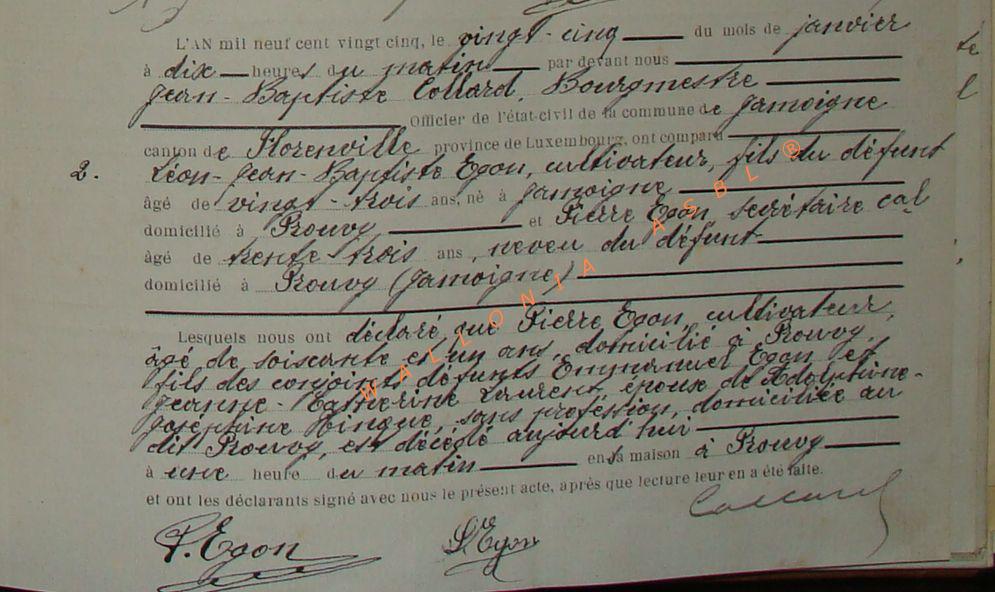 L'AN mil neuf cent vingt cinq, le vingt-cinq du mois de janvier
à dix heures du matin par devant nous
Jean-Baptiste Collard, Bourgmestre
Officier de l'état-civil de la commune de Jamoigne
canton de Florenville province de Luxembourg, ont comparu
2. Léon-Jean-Baptiste Egon, cultivateur, fils du défunt
âgé de vingt-trois ans, né à Jamoigne
domicilié à Prouvy et Pierre Egon, secrétaire cal
âgé de trente-trois ans, neveu du défunt
domicilié à Prouvy (Jamoigne)
Lesquels nous ont déclaré que Pierre Egon, cultivateur,
âgé de soixante et un ans, domicilié à Prouvy,
fils des conjoints défunts Emmanuel Egon et
Jeanne-Catherine Laurent, époux de Adolphine-
Joséphine sans profession, domiciliée au
dit Prouvy, est décédé aujourd'hui
à une heure du matin en sa maison à Prouvy
et ont les déclarants signé avec nous le présent acte, après que lecture leur en a été faite.
Collard
P. Egon
L. Egon
WALLONIA ASBL ®